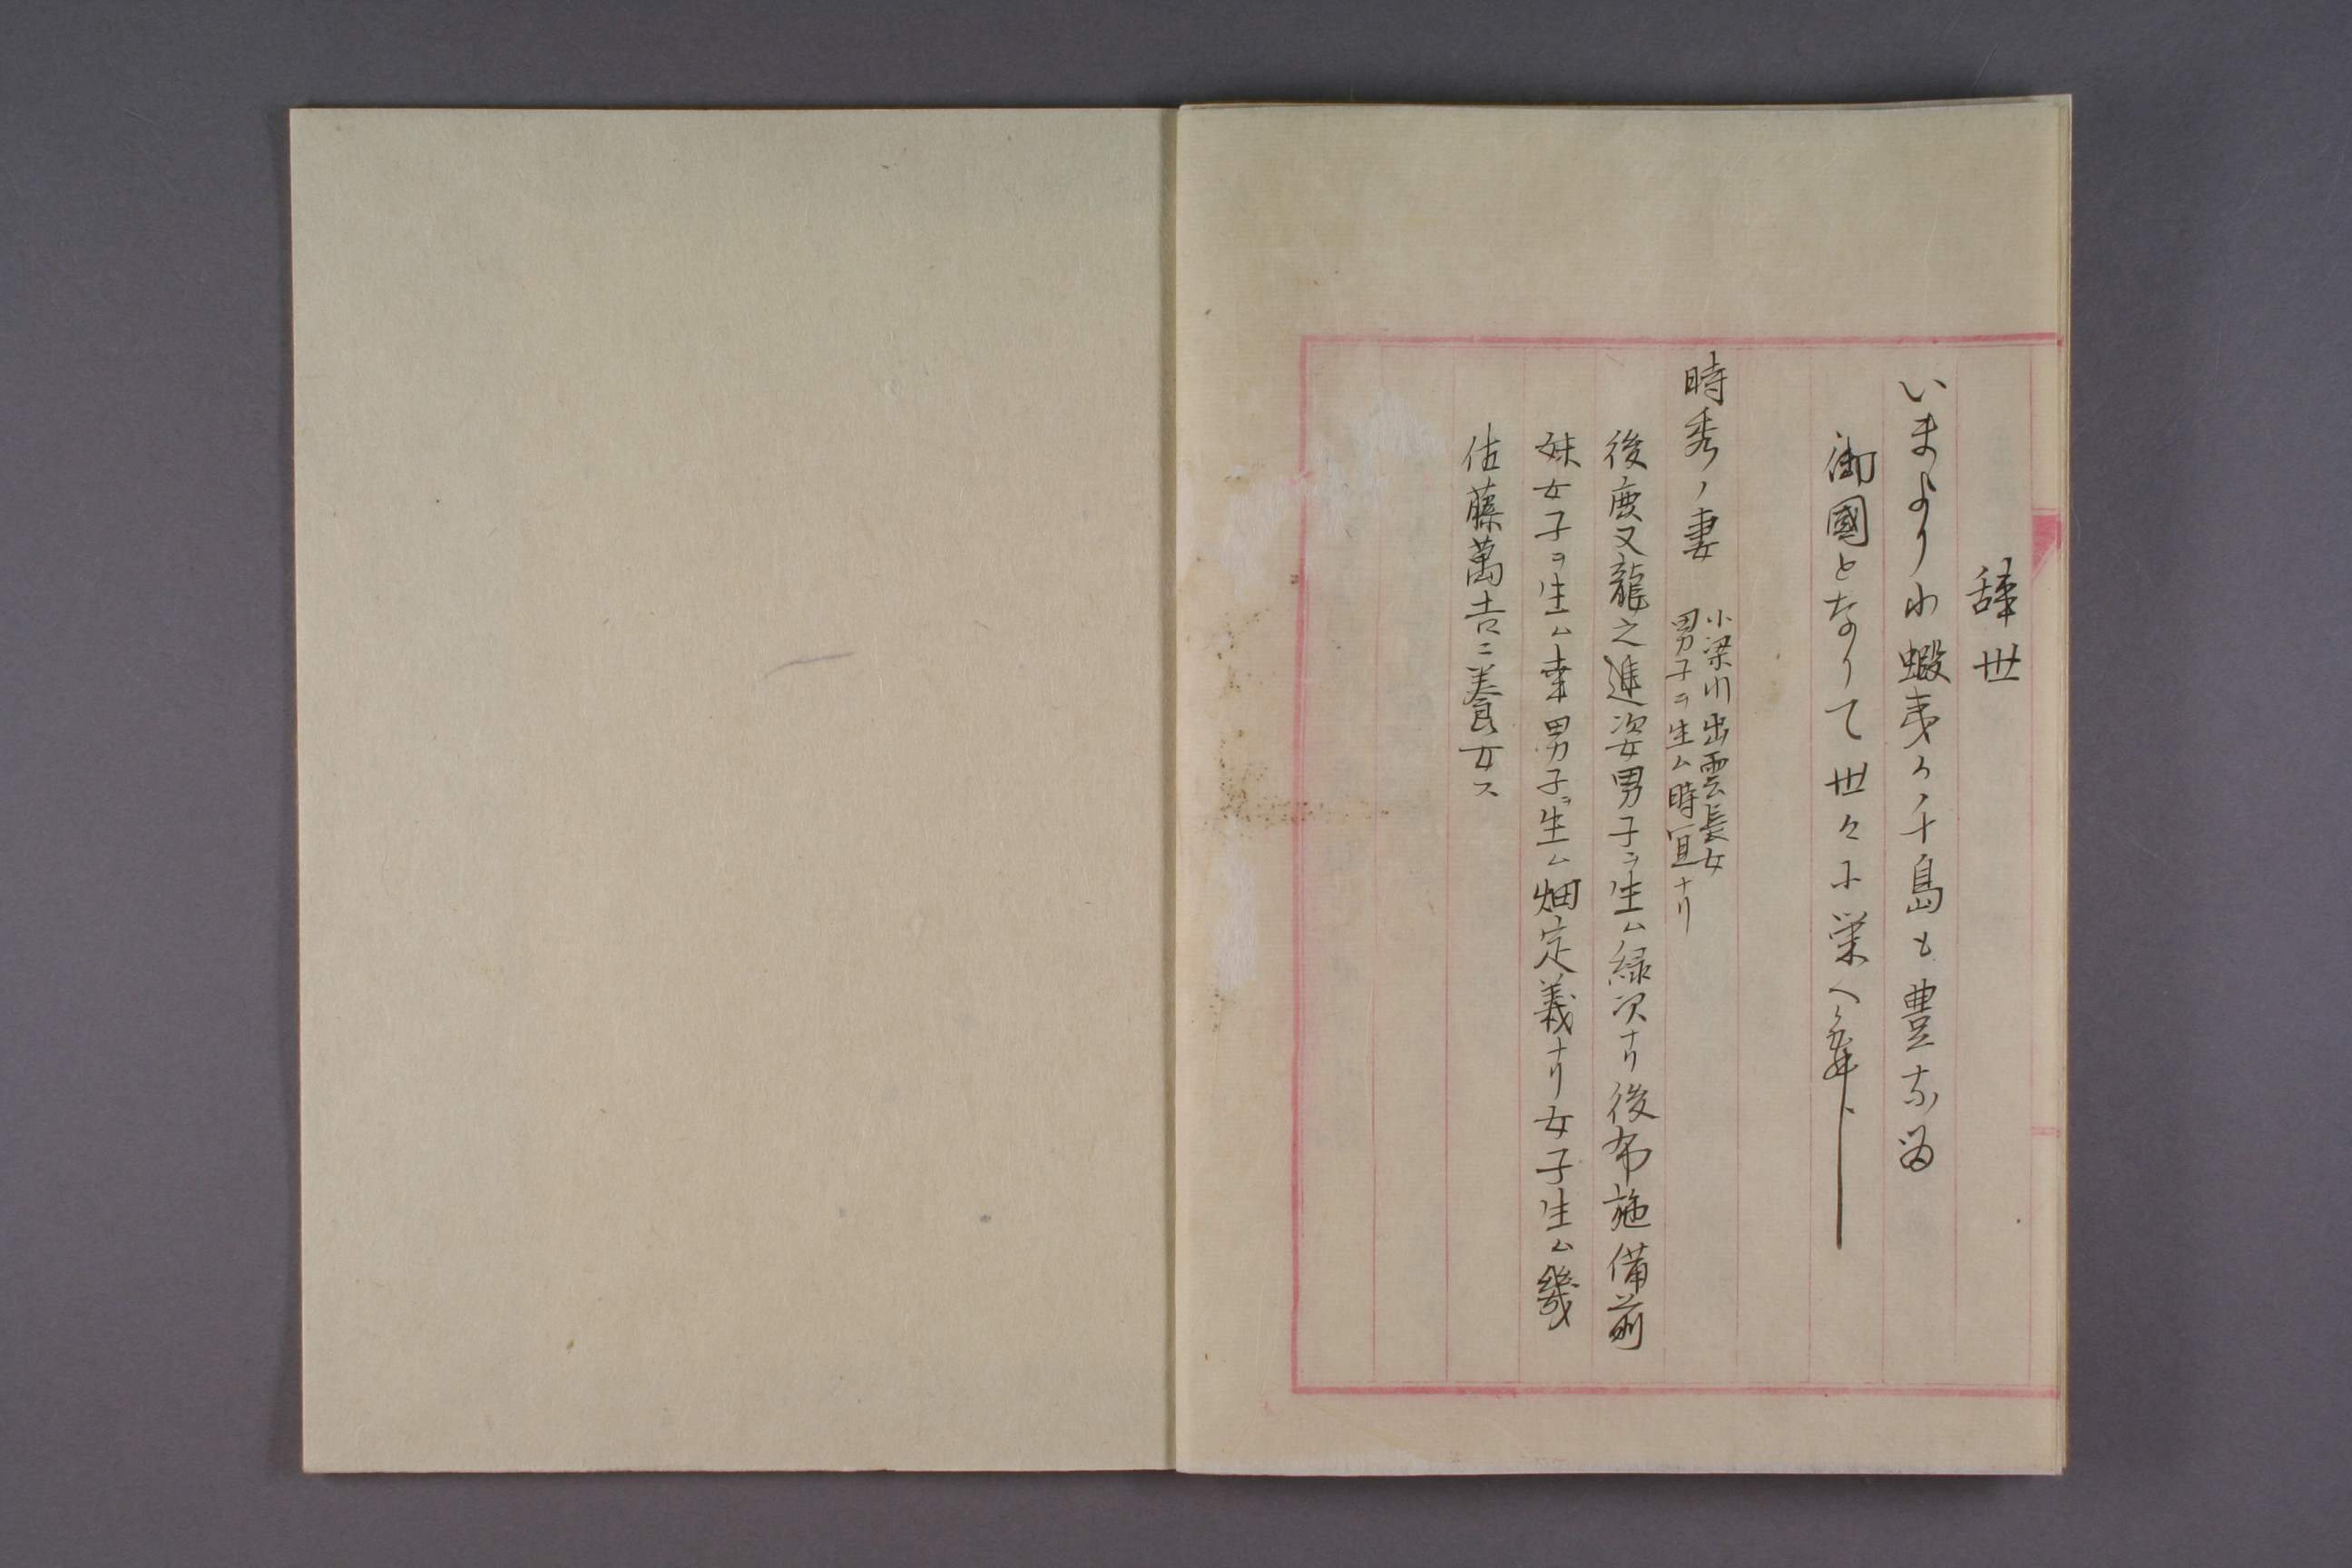 辞世
いまよりわ蝦夷ノ千島も豊
御國となりて世々に栄へ
時秀ノ妻
小梁川出雲長女
男子ヲ生ム時宜ナリ
後鹿又龍之進姿男子ヲ生ム緑次ナリ後布施備前
妹女子ヲ生ム幸男子ヲ生ム畑定義ナリ女子生ム幾
佐藤萬吉ニ養女ス